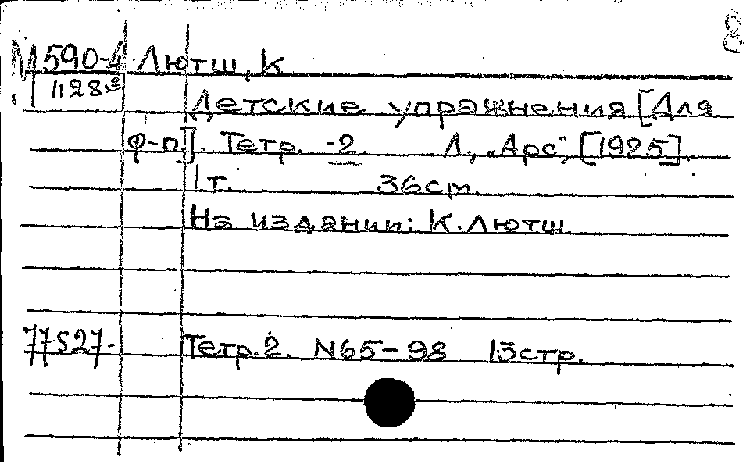 М590-4 Лютш, К
1128
Детские упражнения [Для
ф-п]. Тетр. -2 Л, „Арс", [1925].
1 т. 36 см.
На издании: К. Лютш
77527. Тетр. 2. N65-98 13стр.